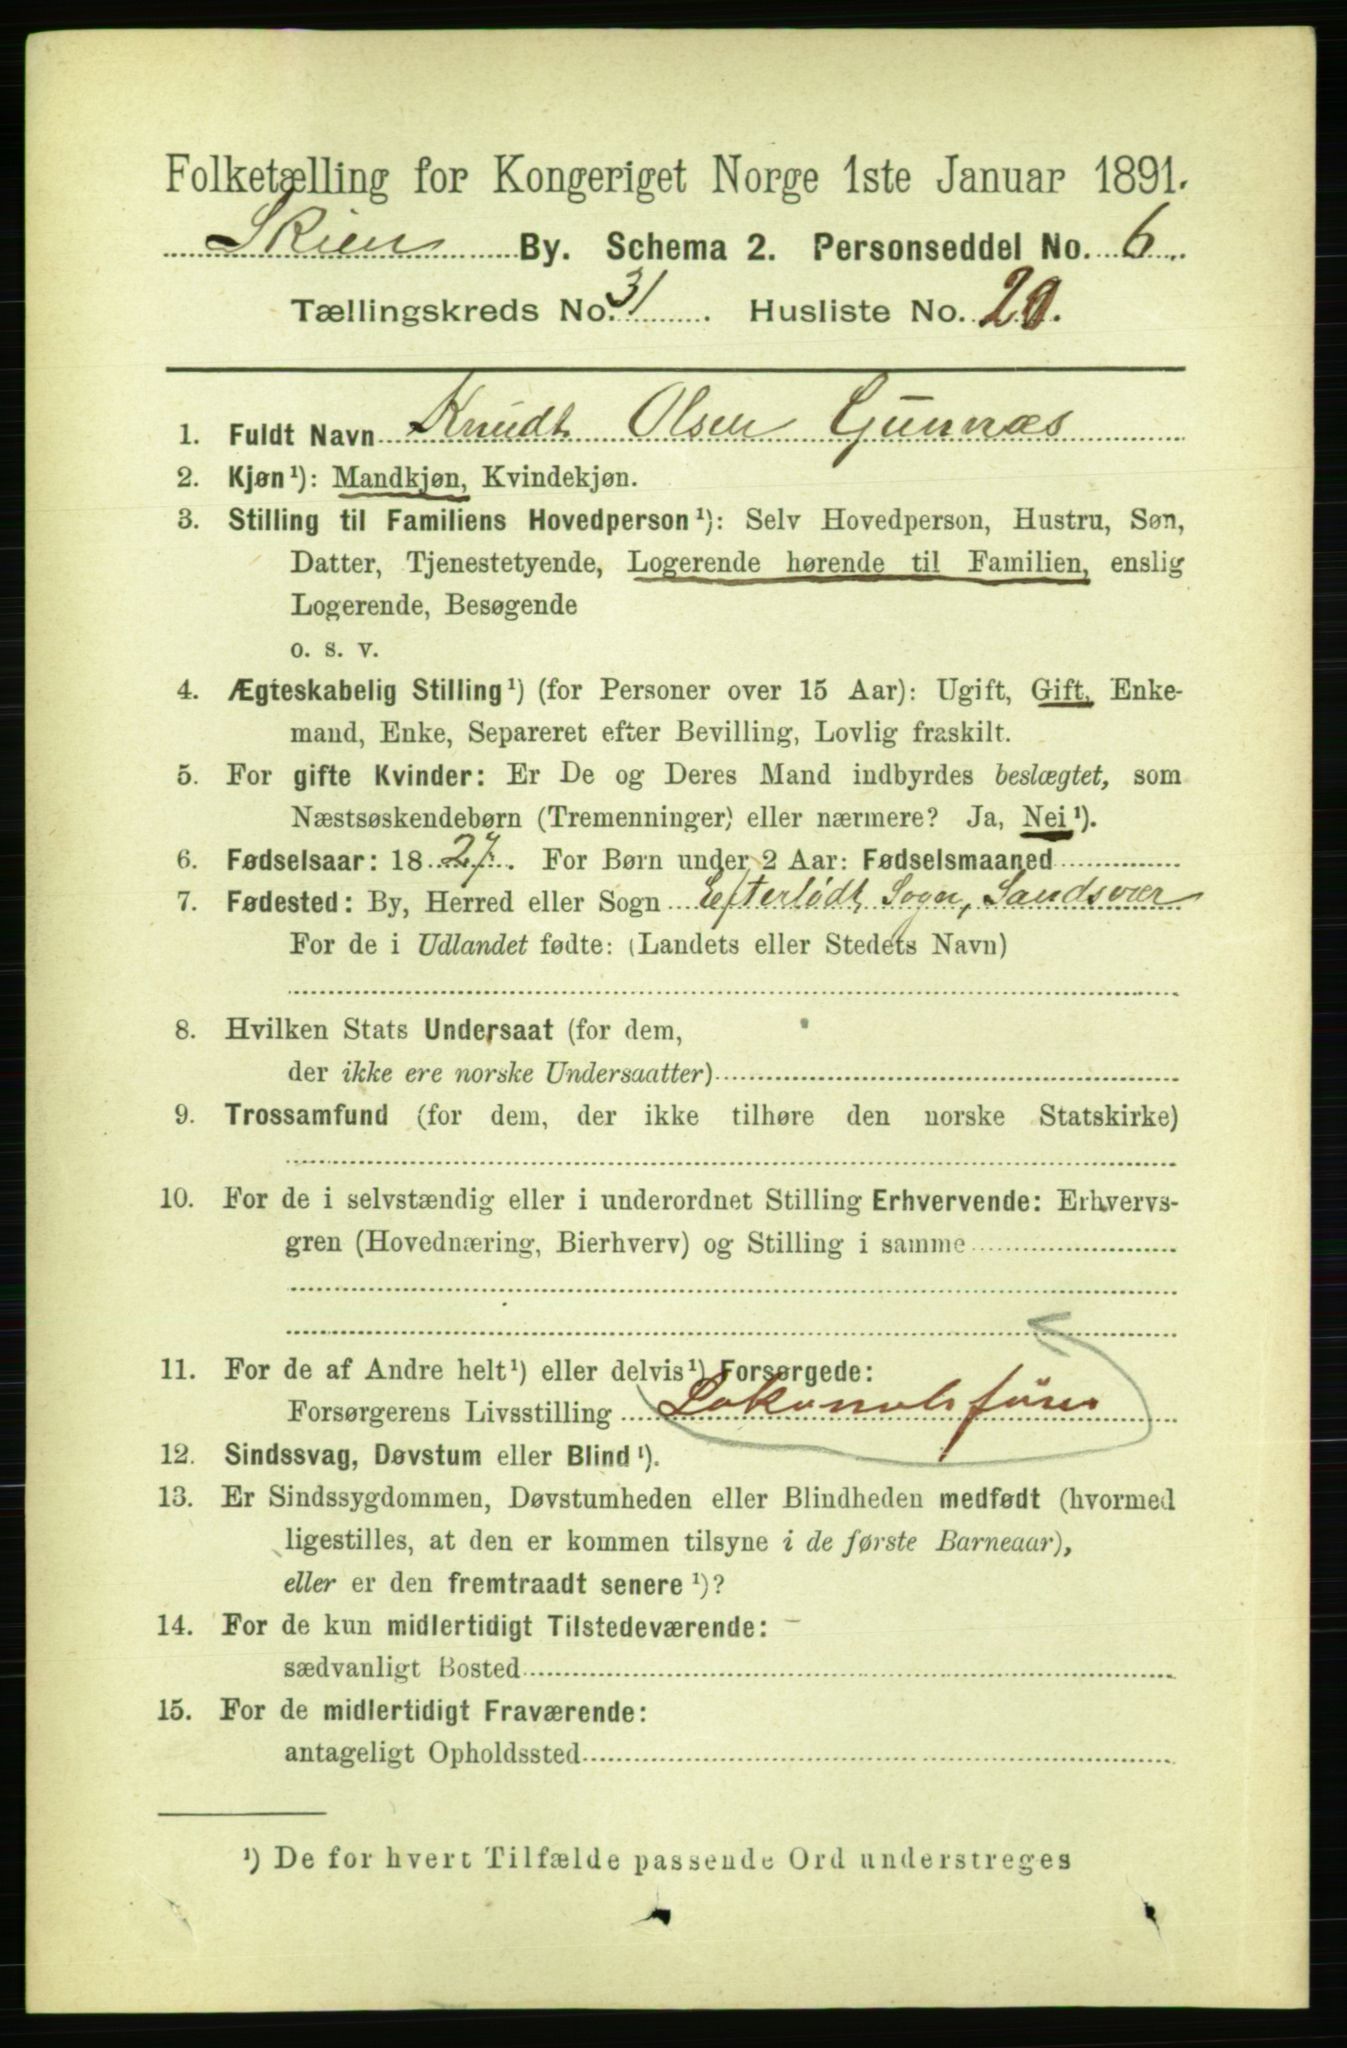 Folketælling for Kongeriget Norge 1ste Januar 1891.
Skien By. Schema 2. Personseddel No. 6
Tællingskreds No. 31. Husliste No. 20.
1. Fuldt Navn Knudt Olsen Gunnæs
2. Kjøn¹): Mandkjøn, Kvindekjøn.
3. Stilling til Familiens Hovedperson¹): Selv Hovedperson, Hustru, Søn,
Datter, Tjenestetyende, Logerende hørende til Familien, enslig
Logerende, Besøgende
o. s. v.
4. Ægteskabelig Stilling¹) (for Personer over 15 Aar): Ugift, Gift, Enke-
mand, Enke, Separeret efter Bevilling, Lovlig fraskilt.
5. For gifte Kvinder: Er De og Deres Mand indbyrdes beslægtet, som
Næstsøskendebørn (Tremenninger) eller nærmere? Ja, Nei¹).
6. Fødselsaar: 1827. For Børn under 2 Aar: Fødselsmaaned
7. Fødested: By, Herred eller Sogn Efterlødt Sogn, Sandsvær
For de i Udlandet fødte: (Landets eller Stedets Navn)
8. Hvilken Stats Undersaat (for dem,
der ikke ere norske Undersaatter)
9. Trossamfund (for dem, der ikke tilhøre den norske Statskirke)
10. For de i selvstændig eller i underordnet Stilling Erhvervende: Erhvervs-
gren (Hovednæring, Bierhverv) og Stilling i samme
11. For de af Andre helt¹) eller delvis¹) Forsørgede:
Forsørgerens Livsstilling
12. Sindssvag, Døvstum eller Blind¹).
13. Er Sindssygdommen, Døvstumheden eller Blindheden medfødt (hvormed
ligestilles, at den er kommen tilsyne i de første Barneaar),
eller er den fremtraadt senere¹)?
14. For de kun midlertidigt Tilstedeværende:
sædvanligt Bosted
15. For de midlertidigt Fraværende:
antageligt Opholdssted
¹) De for hvert Tilfælde passende Ord understreges